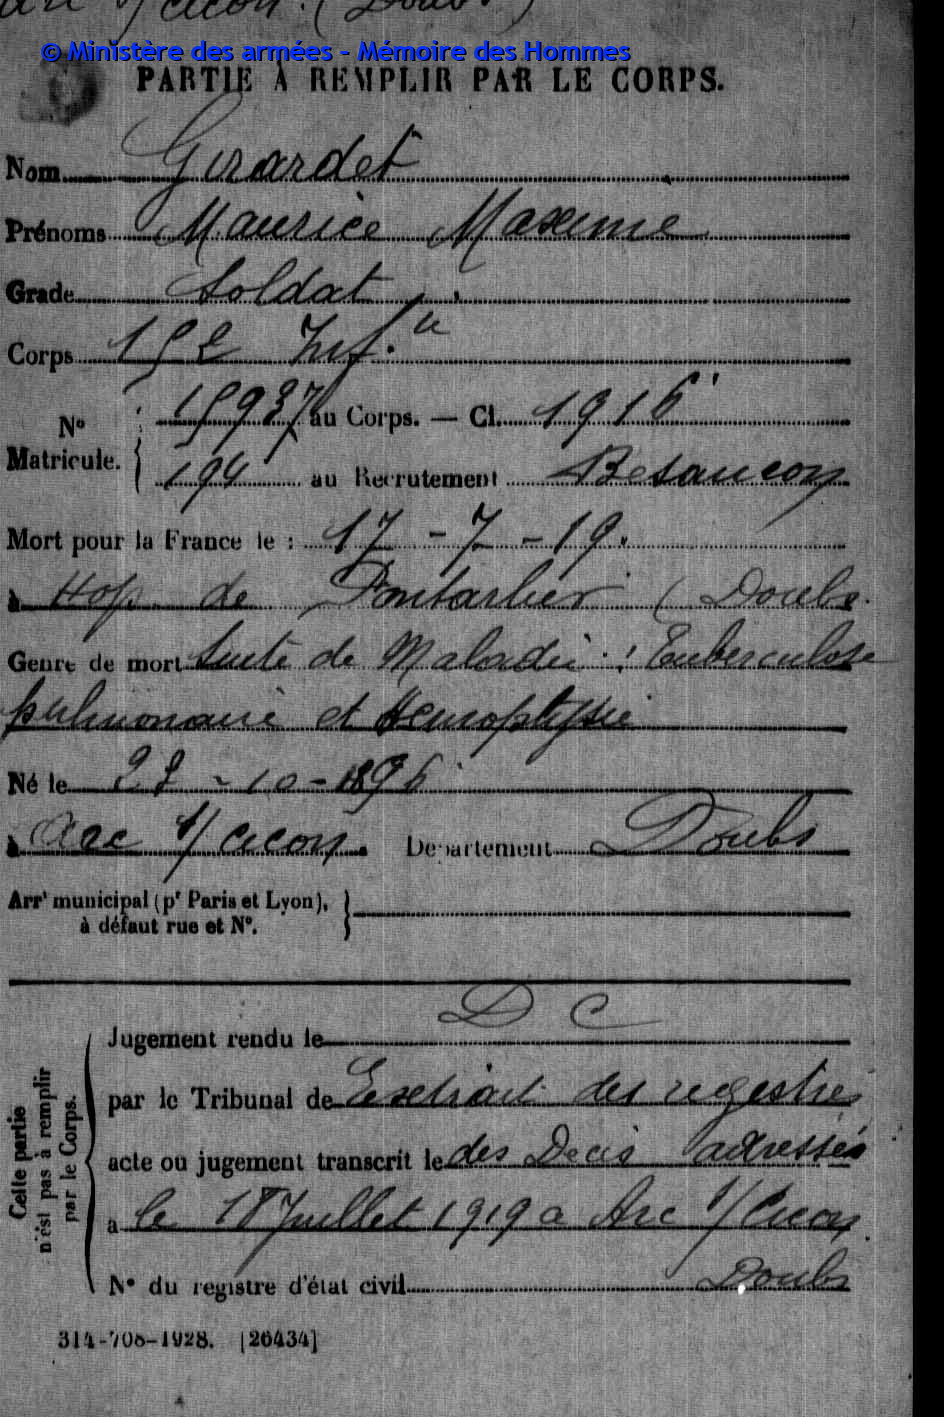 s/ Cicon. (Doubs)
© Ministère des armées - Mémoire des Hommes
PARTIE À REMPLIR PAR LE CORPS.
Nom Girardet
Prénoms Maurice Maxime
Grade Soldat
Corps 152 Inf.ie
N° Matricule. 15937 au Corps. — Cl. 1916
194 au Recrutement Besançon
Mort pour la France le : 17 - 7 - 19.
à Hop. de Pontarlier (Doubs
Genre de mort Suite de Maladie : Tuberculose
pulmonaire et Hemoptysie
Né le 28 - 10 - 1896
à Arc s/ Cicon. Département Doubs
Arrt municipal (pr Paris et Lyon),
à défaut rue et N°.
D C
Cette partie n'est pas à remplir par le Corps.
Jugement rendu le
par le Tribunal de Extrait des registres
acte ou jugement transcrit le des Décès adressés
à le 18 Juillet 1919 a Arc s/ Cicon.
N° du registre d'état civil Doubs
314-708-1928. [26434]